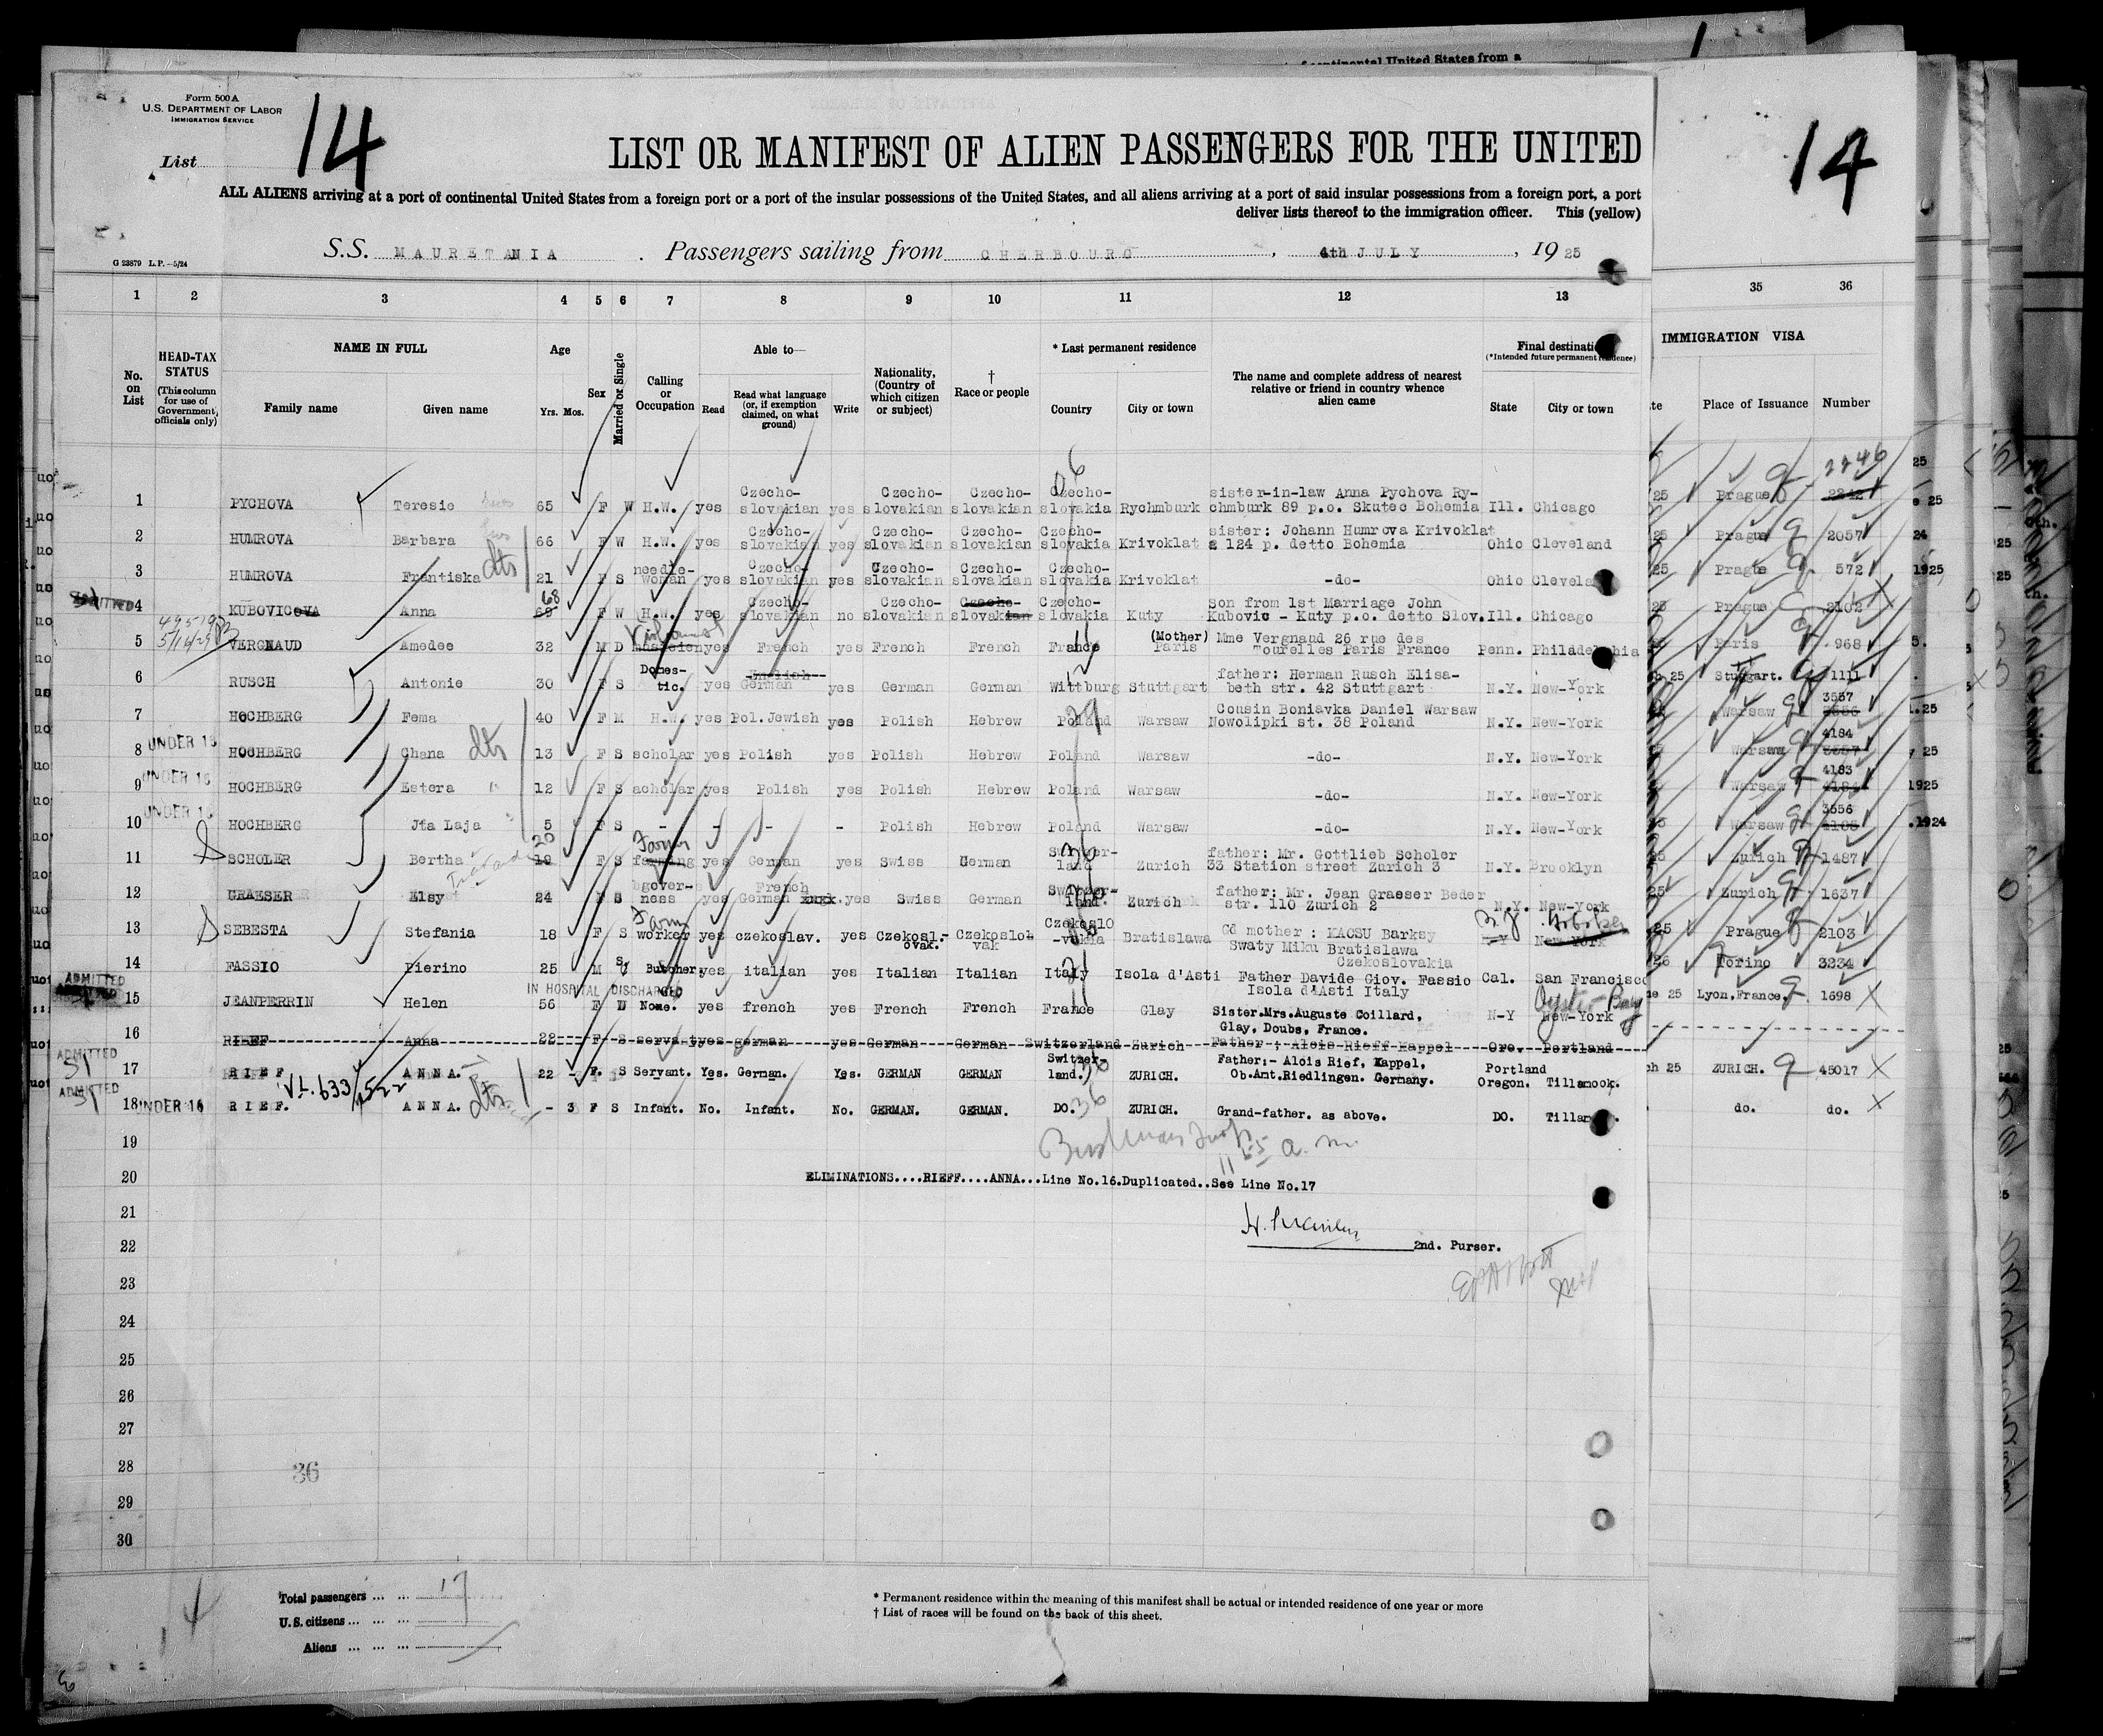 Form 500 A
U.S. DEPARTMENT OF LABOR
IMMIGRATION SERVICE
List 14
14
LIST OR MANIFEST OF ALIEN PASSENGERS FOR THE UNITED
ALL ALIENS arriving at a port of continental United States from a foreign port or a port of the insular possessions of the United States, and all aliens arriving at a port of said insular possessions from a foreign port, a port
deliver lists thereof to the immigration officer. This (yellow)
S.S. MAURETANIA . Passengers sailing from CHERBOURG , 4th JULY , 19 25
G 23879 L.P.-5/24
1 2 3 4 5 6 7 8 9 10 11 12 13 35 36
No. on List HEAD-TAX STATUS (This column for use of Government officials only) NAME IN FULL Family name Given name Age Yrs. Mos. Sex Married or Single Calling or Occupation Able to— Read Read what language (or, if exemption claimed, on what ground) Write Nationality, (Country of which citizen or subject) † Race or people * Last permanent residence Country City or town The name and complete address of nearest relative or friend in country whence alien came Final destination (*Intended future permanent residence) State City or town IMMIGRATION VISA Place of Issuance Number
1 PYCHOVA Teresie 65 F W H.W. yes Czecho-slovakian yes Czecho-slovakian Czecho-slovakian Czecho-slovakia Rychmburk sister-in-law Anna Pychova Ry-chmburk 89 p.o. Skutec Bohemia Ill. Chicago 25 Prague 2242 2246
2 HUMROVA Barbara 66 F W H.W. yes Czecho-slovakian yes Czecho-slovakian Czecho-slovakian Czecho-slovakia Krivoklat sister: Johann Humrova Krivoklat 124 p. detto Bohemia Ohio Cleveland 25 Prague 2057
3 HUMROVA Frantiska 21 F S needle-woman yes Czecho-slovakian yes Czecho-slovakian Czecho-slovakian Czecho-slovakia Krivoklat -do- Ohio Cleveland 25 Prague 572
4 KUBOVICOVA Anna 69 68 F W H.W. yes Czecho-slovakian no Czecho-slovakian Czecho-slovakian Czecho-slovakia Kuty Son from 1st Marriage John Kubovic - Kuty p.o. detto Slov. Ill. Chicago 25 Prague 2102
5 VERGNAUD Amedee 32 M D musicien yes French yes French French France Paris (Mother) Mme Vergnaud 26 rue des Tourelles Paris France Penn. Philadelphia Paris 968
6 RUSCH Antonie 30 F S Domes-tic. yes English German yes German German Wittburg Stuttgart father: Herman Rusch Elisa-beth str. 42 Stuttgart N.Y. New-York 25 Stuttgart. 1111
7 HOCHBERG Fema 40 F M H.W. yes Pol. Jewish yes Polish Hebrew Poland Warsaw Cousin Boniavka Daniel Warsaw Nowolipki st. 38 Poland N.Y. New-York Warsaw 3557
8 UNDER 16 HOCHBERG Chana 13 F S scholar yes Polish yes Polish Hebrew Poland Warsaw -do- N.Y. New-York Warsaw 4184
9 UNDER 16 HOCHBERG Estera 12 F S scholar yes Polish yes Polish Hebrew Poland Warsaw -do- N.Y. New-York Warsaw 4183 4184
10 UNDER 16 HOCHBERG Jta Laja 5 F S - - - - Polish Hebrew Poland Warsaw -do- N.Y. New-York Warsaw 3556
11 SCHOLER Bertha 19 20 F S farming Farmer yes German yes Swiss German Switzer-land Zurich father: Mr. Gottlieb Scholer 33 Station street Zurich 3 N.Y. Brooklyn 25 Zurich 1487
12 GRAESER Elsy 24 F S gover-ness yes French German yes Swiss German Switzer-land. Zurich father: Mr. Jean Graeser Beder str. 110 Zurich 2 N.Y. New-York 25 Zurich 1637
13 SEBESTA Stefania 18 F S Farm worker yes czekoslav. yes Czekosl.-ovak. Czekoslo-vak Czekoslo-vakia Bratislawa Gd mother : MACSU Barksy Swaty Miku Bratislawa Czekoslovakia New York 25 Prague 2103
14 FASSIO Pierino 25 M S Butcher yes italian yes Italian Italian Italy Isola d'Asti Father Davide Giov. Fassio Isola d'Asti Italy Cal. San Francisco Torino 3234
IN HOSPITAL DISCHARGED
15 ADMITTED JEANPERRIN Helen 56 F None. yes french yes French French France Glay Sister.Mrs.Auguste Coillard, Glay, Doubs, France. N-Y New-York Oyster Bay 25 Lyon,France, 1698
16 RIEF Anna 22 F S servant yes german yes German German Switzerland Zurich Father ; Alois Rieff Kappel Ore. Portland
17 ADMITTED RIEF ANNA. 22 - F. S Servant. Yes. German. Yes. GERMAN GERMAN Switzer-land. ZURICH. Father;- Alois Rief, Kappel, Ob.Amt.Riedlingen. Germany. Portland Oregon. Tillamook. 25 ZURICH. 45017
18 ADMITTED UNDER 16 RIEF. ANNA. - 3 F S Infant. No. Infant. No. GERMAN. GERMAN. DO. ZURICH. Grand-father. as above. DO. do. do.
19
20 ELIMINATIONS....RIEFF....ANNA...Line No.16.Duplicated..See Line No.17
21
22 2nd. Purser.
23
24
25
26
27
28 36
29
30
Total passengers ... ... 17
U.S. citizens ... ... ...
Aliens ... ... ...
* Permanent residence within the meaning of this manifest shall be actual or intended residence of one year or more
† List of races will be found on the back of this sheet.